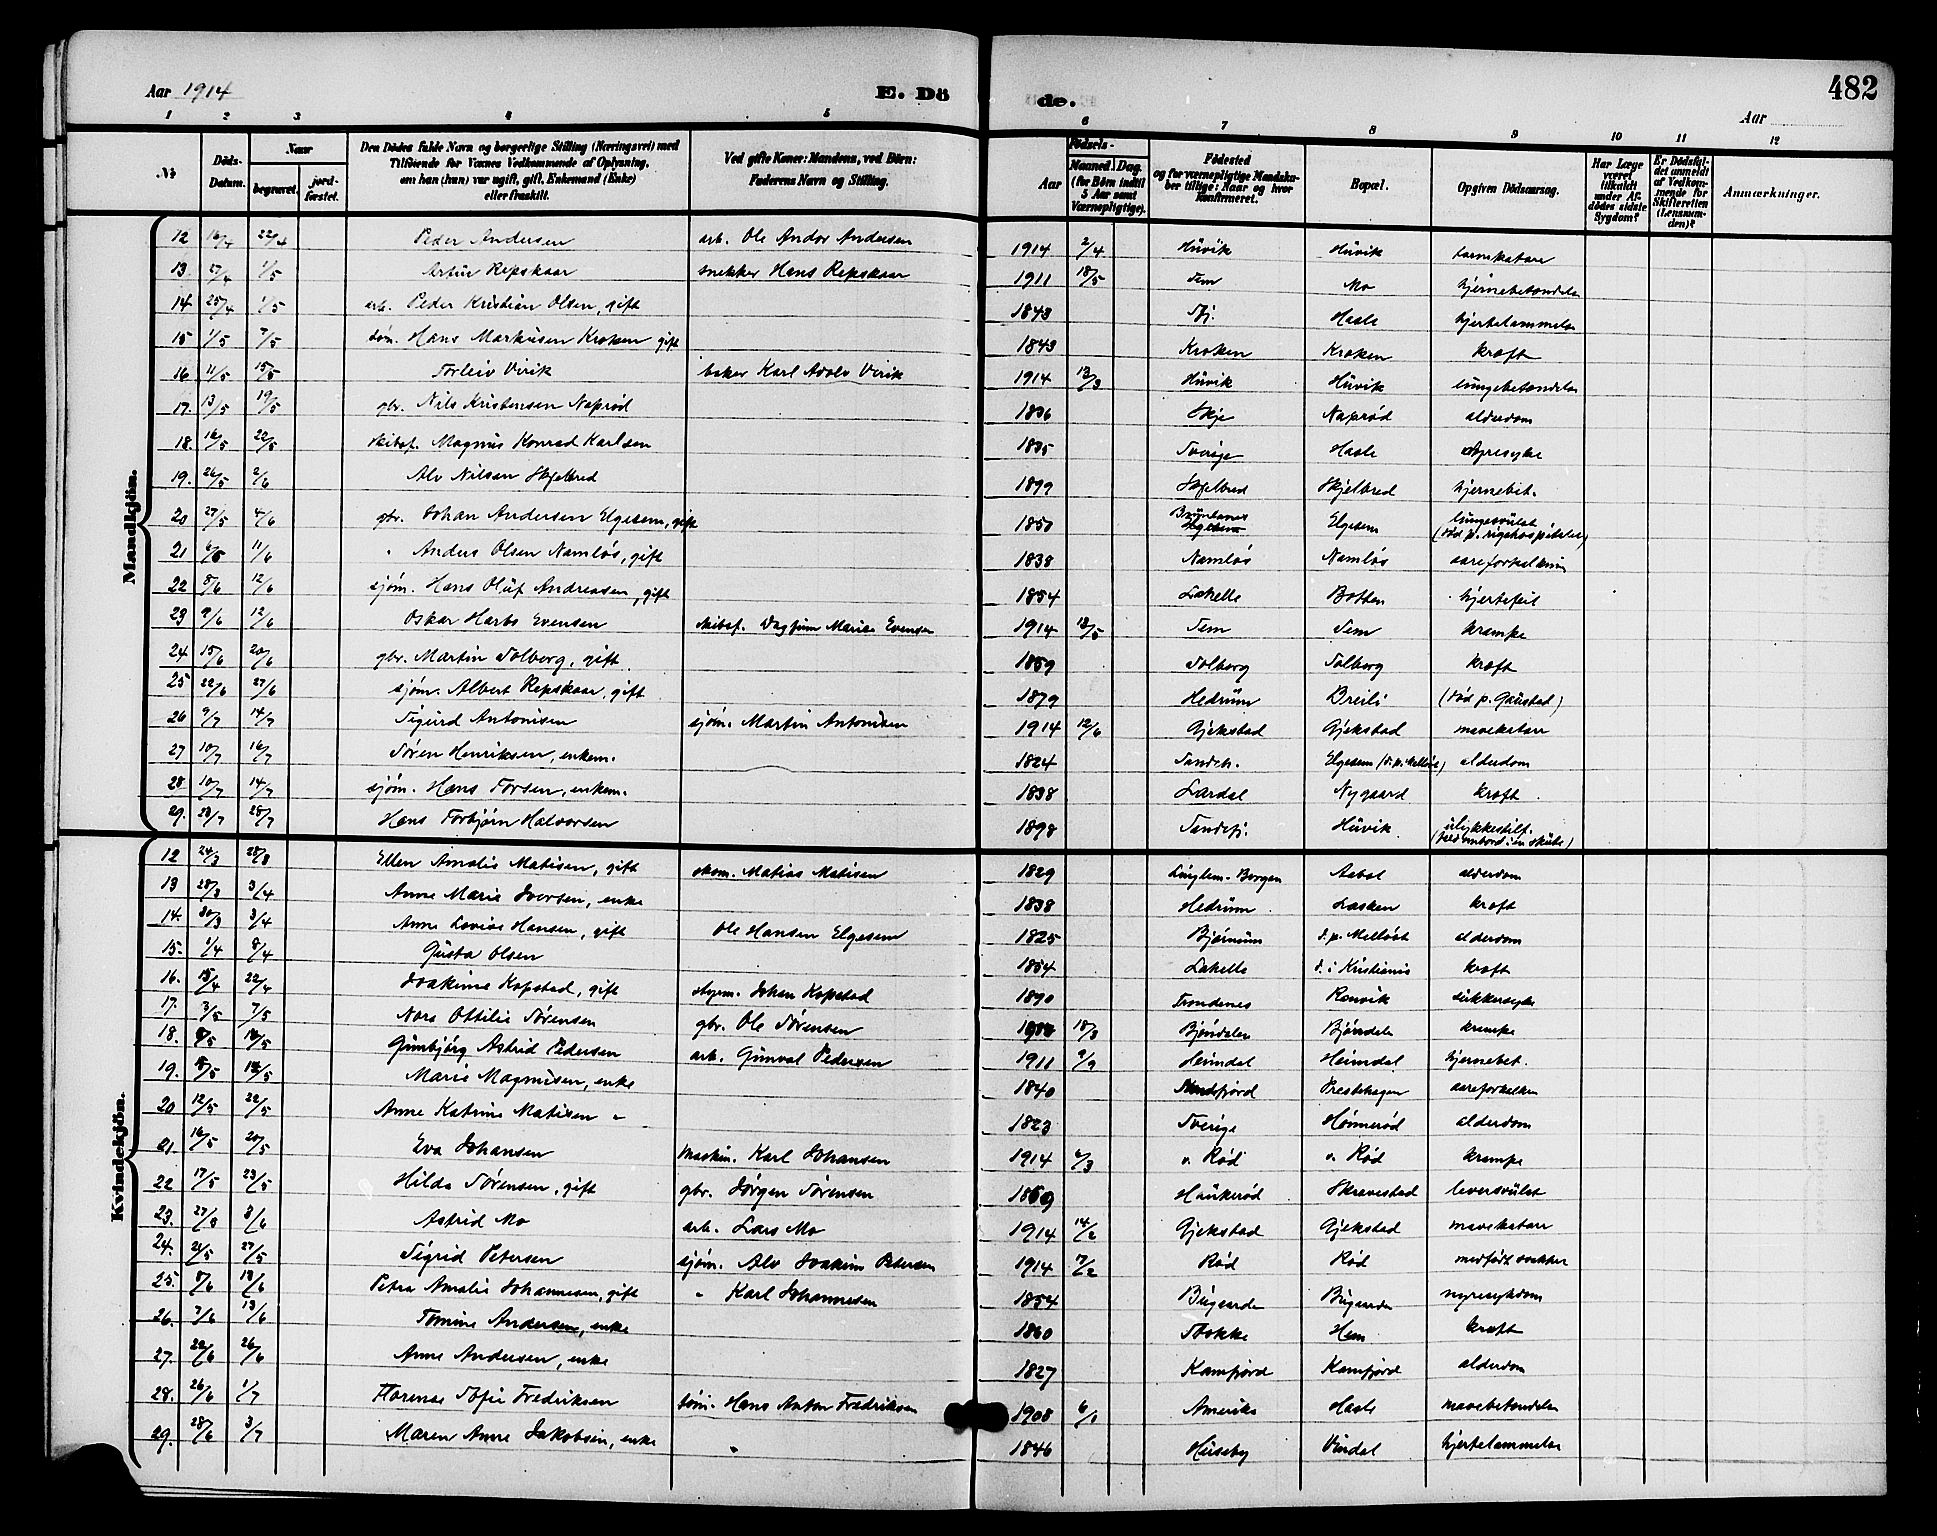 Aar 1914 E. Dö de. Aar 482
1 2 3 4 5 6 7 8 9 10 11 12
№ Döds-Datum. Naar begravet. jord-fæstet. Den Dödes fulde Navn og borgerlige Stilling (Næringsvei) med Tilföiende for Voxnes Vedkommende af Oplysning, om han (hun) var ugift, gift, Enkemand (Enke) eller fraskilt. Ved gifte Koner: Mandens, ved Börn: Faderens Navn og Stilling. Födsels- Aar Maaned. Dag. (for Börn indtil 5 Aar samt Værnepligtige). Födested og for værnepligtige Mandska-ber tillige: Naar og hvor konfirmeret. Bopæl. Opgiven Dödsaarsag. Har Læge været tilkaldt under Af-dödes sidste Sygdom? Er Dödsfal-det anmeldt af Vedkom-mende for Skifteretten (Lensman-den)? Anmærkninger.
Mandkjön.
12 16/4 22/4 Peder Andersen arb. Ole Andor Andersen 1914 2/4 Huvik Huvik tarmkatarr
13. 27/4 1/5 Artur Repskaar snekker Hans Repskaar 1911 18/5 Fem Mo hjernebetændelse
14 25/4 1/5 arb. Peder Kristian Olsen, gift 1843 Tj. Hasle hjertelammelse
15 1/5 7/5 søm. Hans Markusen Kroken gift 1843 Kroken Kroken kræft
16 11/5 15/5 Torleiv Virik baker Karl Adolv Virik 1914 13/3 Huvik Huvik lungebetændelse
17. 13/5 19/5 gbr. Nils Kristensen Naprød 1836 Skje Naprød alderdom
18. 16/5 22/5 skibsf. Magnus Konrad Karlsen 1835 Sverige Hasle nyresyke
19. 26/5 2/6 Alv Nilsen Skjelbred 1899 Skjelbred Skjelbred hjernebet.
20 27/5 4/6 gbr. Johan Andersen Elgesem, gift 1850 Elgesem lungesvulst (død p. rigshospitalet)
21 6/6 11/6 " Anders Olsen Namløs, gift 1838 Namløs Namløs aareforkalkning
22 8/6 12/6 sjøm. Hans Oluf Andreasen, gift 1854 Lahelle Botten hjertefeil
23 9/6 12/6 Oskar Harbo Evensen skibsf. Dagfinn Marius Evensen 1914 18/5 Fem Fem krampe
24 15/6 20/6 gbr. Martin Solberg, gift 1859 Solberg Solberg kræft
25 22/6 27/6 sjøm. Albert Repskaar, gift 1879 Hedrum Breili (død p. Gaustad)
26 9/7 14/7 Sigurd Antonisen sjøm. Martin Antonisen 1914 12/6 Gjekstad Gjekstad mavekatarr
27 10/7 16/7 Søren Henriksen, enkem. 1824 Sandeh. Elgesem (d. p. Melløst) alderdom
28 10/7 14/7 sjøm. Hans Torsen, enkem. 1838 Lardal Nygaard kræft
29. 23/7 28/7 Hans Torbjørn Halvorsen 1898 Sandefj. Huvik ulykkestilf. ( ombord i en skute)
Kvindekjön.
12 24/3 28/3 Ellen Amalie Matisen, gift skom. Matias Matisen 1829 Linglem-Borgen Aabol alderdom
13 28/3 3/4 Anne Marie Iversen, enke 1838 Hedrum Lasken kræft
14. 30/3 3/4 Anne Lovise Hansen, gift Ole Hansen Elgesem 1825 Bjørnum d. p. Melløst alderdom
15. 1/4 8/4 Gusta Olsen 1854 Lahelle d. i Kristiania kræft
16. 15/4 22/4 Joakime Kopstad, gift styrm. Johan Kopstad 1890 Trondenes Ronvik sukkersyke
17. 3/5 7/5 Nora Ottilie Sørensen gbr. Ole Sørensen 18/8 Bjøndalen Bjøndalen krampe
18. 8/5 14/5 Gunbjørg Astrid Pedersen arb. Gunval Pedersen 1911 9/9 Heimdal Heimdal hjernebet.
19. 8/5 12/5 Marie Magnusen, enke 1840 Sandefjord Presthagen aareforkalken
20 12/5 22/5 Anne Katrine Matisen " 1823 Sverige Hønnerød alderdom
21. 16/5 20/5 Eva Johansen maskin. Karl Johansen 1914 6/3 v. Rød v. Rød krampe
22 17/5 23/5 Hilda Sørensen, gift gbr. Jørgen Sørensen 1869 Haukerød Skravestad leversvulst
23. 27/5 3/6 Astrid Mo arb. Lars Mo 1914 14/2 Gjekstad Gjekstad mavekatarr
24. 21/5 27/5 Sigrid Petersen sjøm. Alv Joakim Petersen 1914 7/2 Rød Rød medfødt svakhet
25. 8/6 13/6 Petra Amalie Johannesen, gift " Karl Johannesen 1854 Bugaarden Bugaarden nyresykdom
26. 7/6 13/6 Tomine Andersen, enke 1860 Stokke Hem kræft
27. 22/6 26/6 Anne Andersen, enke 1827 Kamfjord Kamfjord alderdom
28. 26/6 1/7 Florense Sofie Fredriksen søm. Hans Anton Fredriksen 1908 6/1 Amerika Hasle mavebetændelse
29. 28/6 3/7 Maren Anne Jakobsen, enke 1846 Huseby Vindal hjertelammelse